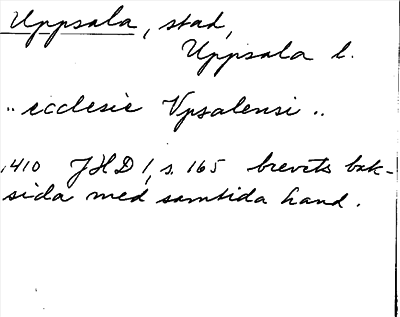 Uppsala, stad,
Uppsala l.
"ecclesie Vpsalensi"
1410 JHD 1, s. 165 brevets bak-
sida med samtida hand.